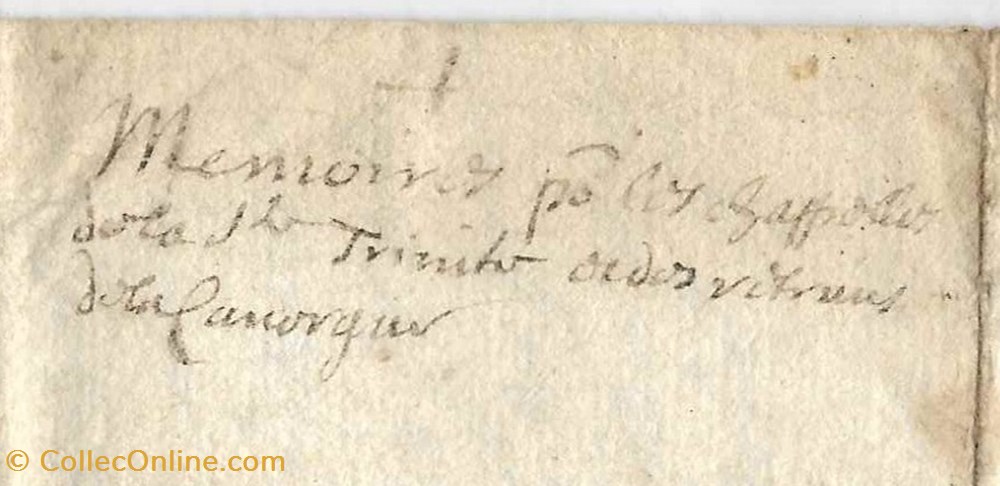 +
Memoires po les chappelles
de la Ste Trinite et des
de la Canorgue
© CollecOnline.com